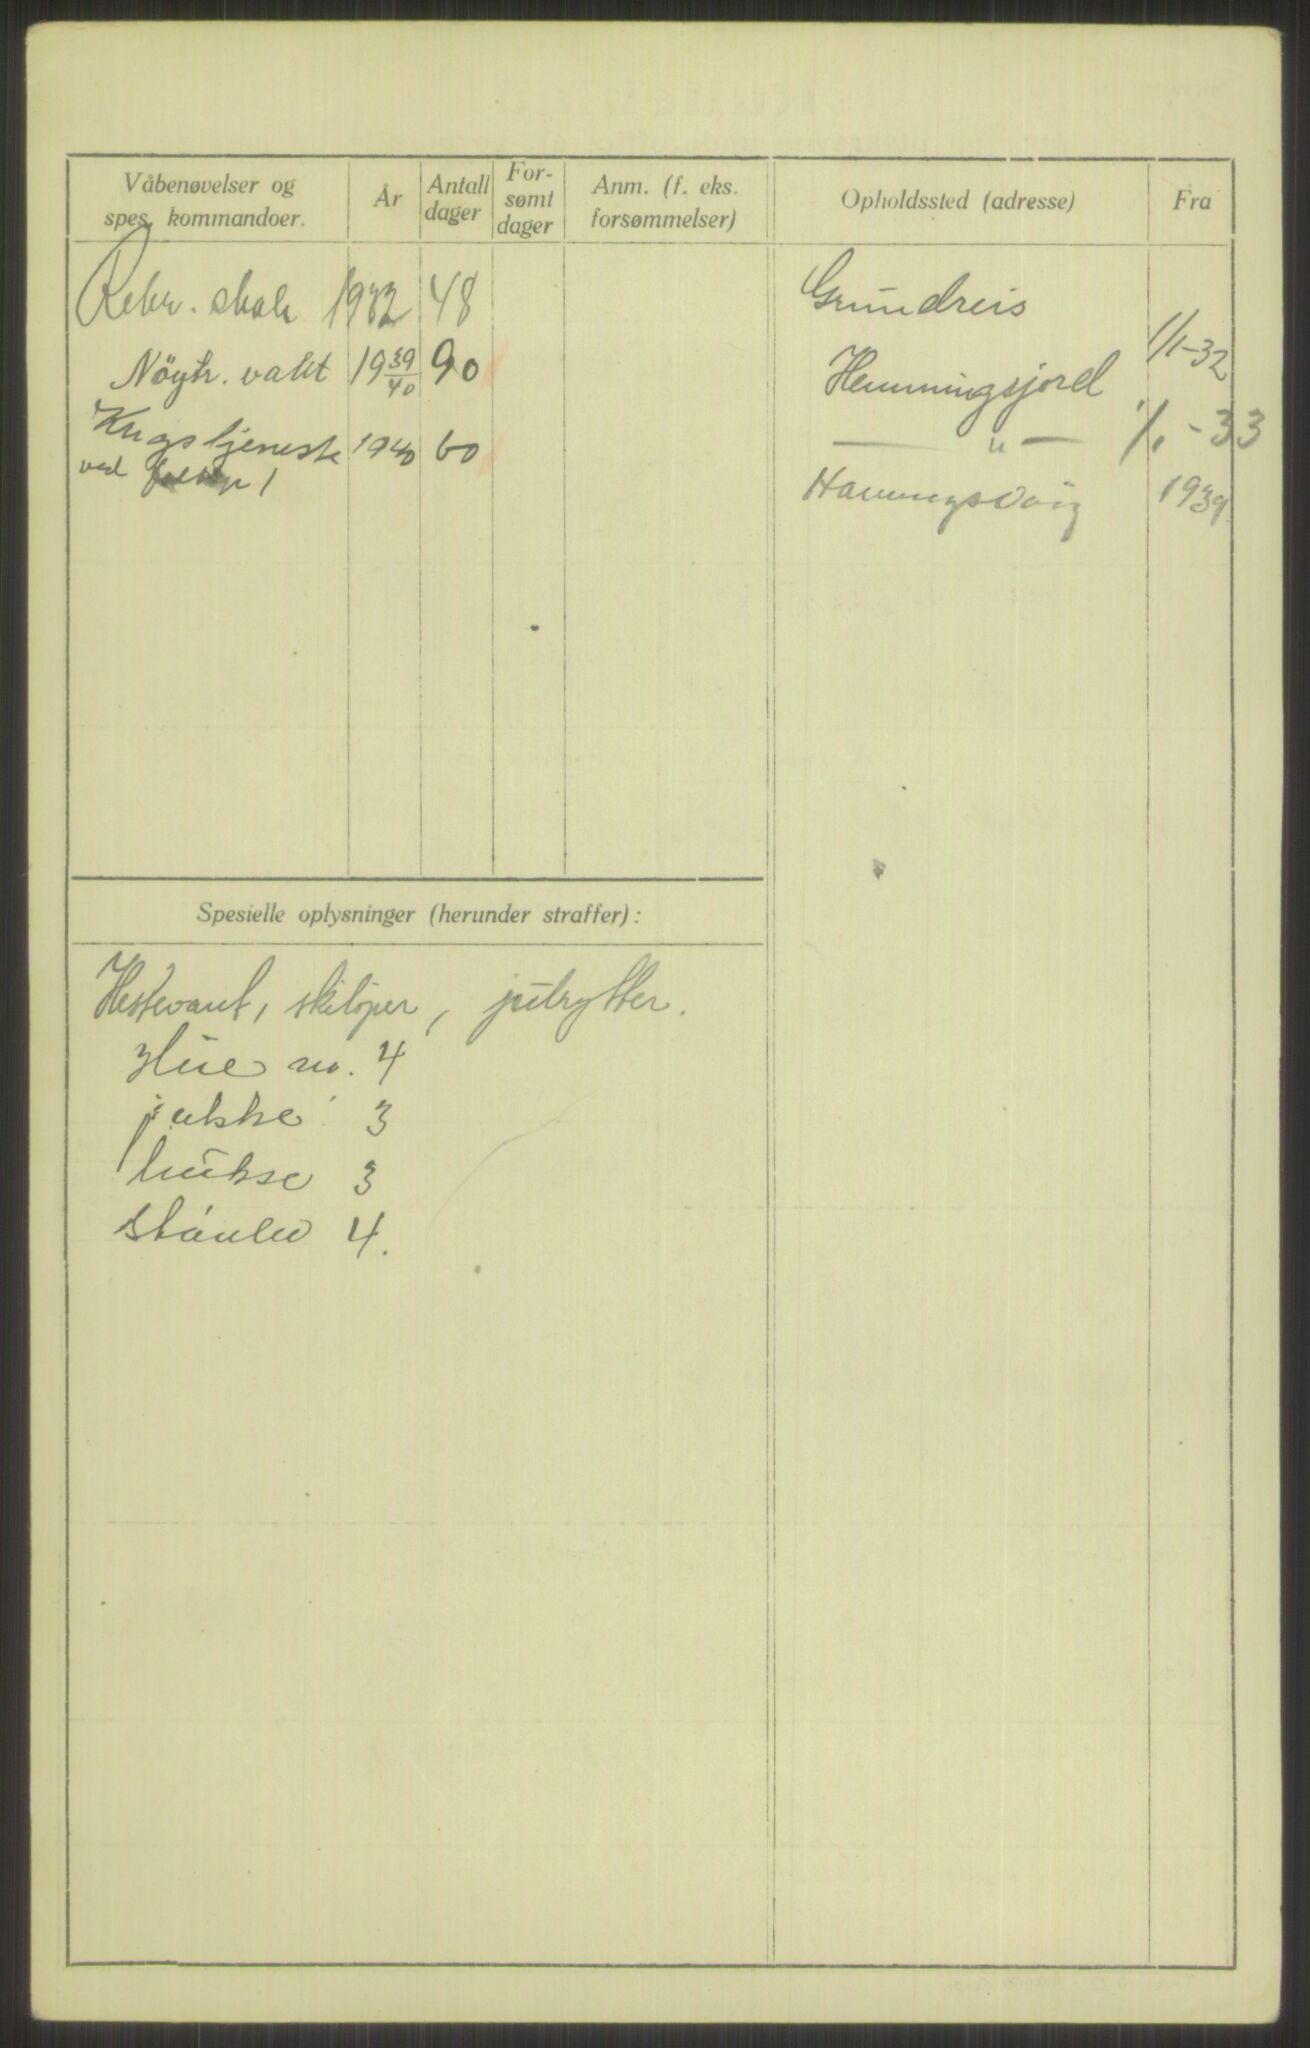 Våbenøvelser og
spes. kommandoer.
År
Antall
dager
For-
sømt
dager
Anm. (f. eks.
forsømmelser)
Opholdssted (adresse)
Fra
Rekr. skole 1932 48
Nöytr. vakt 19 39/40 90
Krigstjeneste 1940 60
ved
Grundreis
Hemmingsjord 1/1-32
— " — 1/1-33
Honningsvåg 1939
Spesielle oplysninger (herunder straffer):
Hestevant, skiløper,
Hue no. 4
jakke 3
bukse 3
støvler 4.